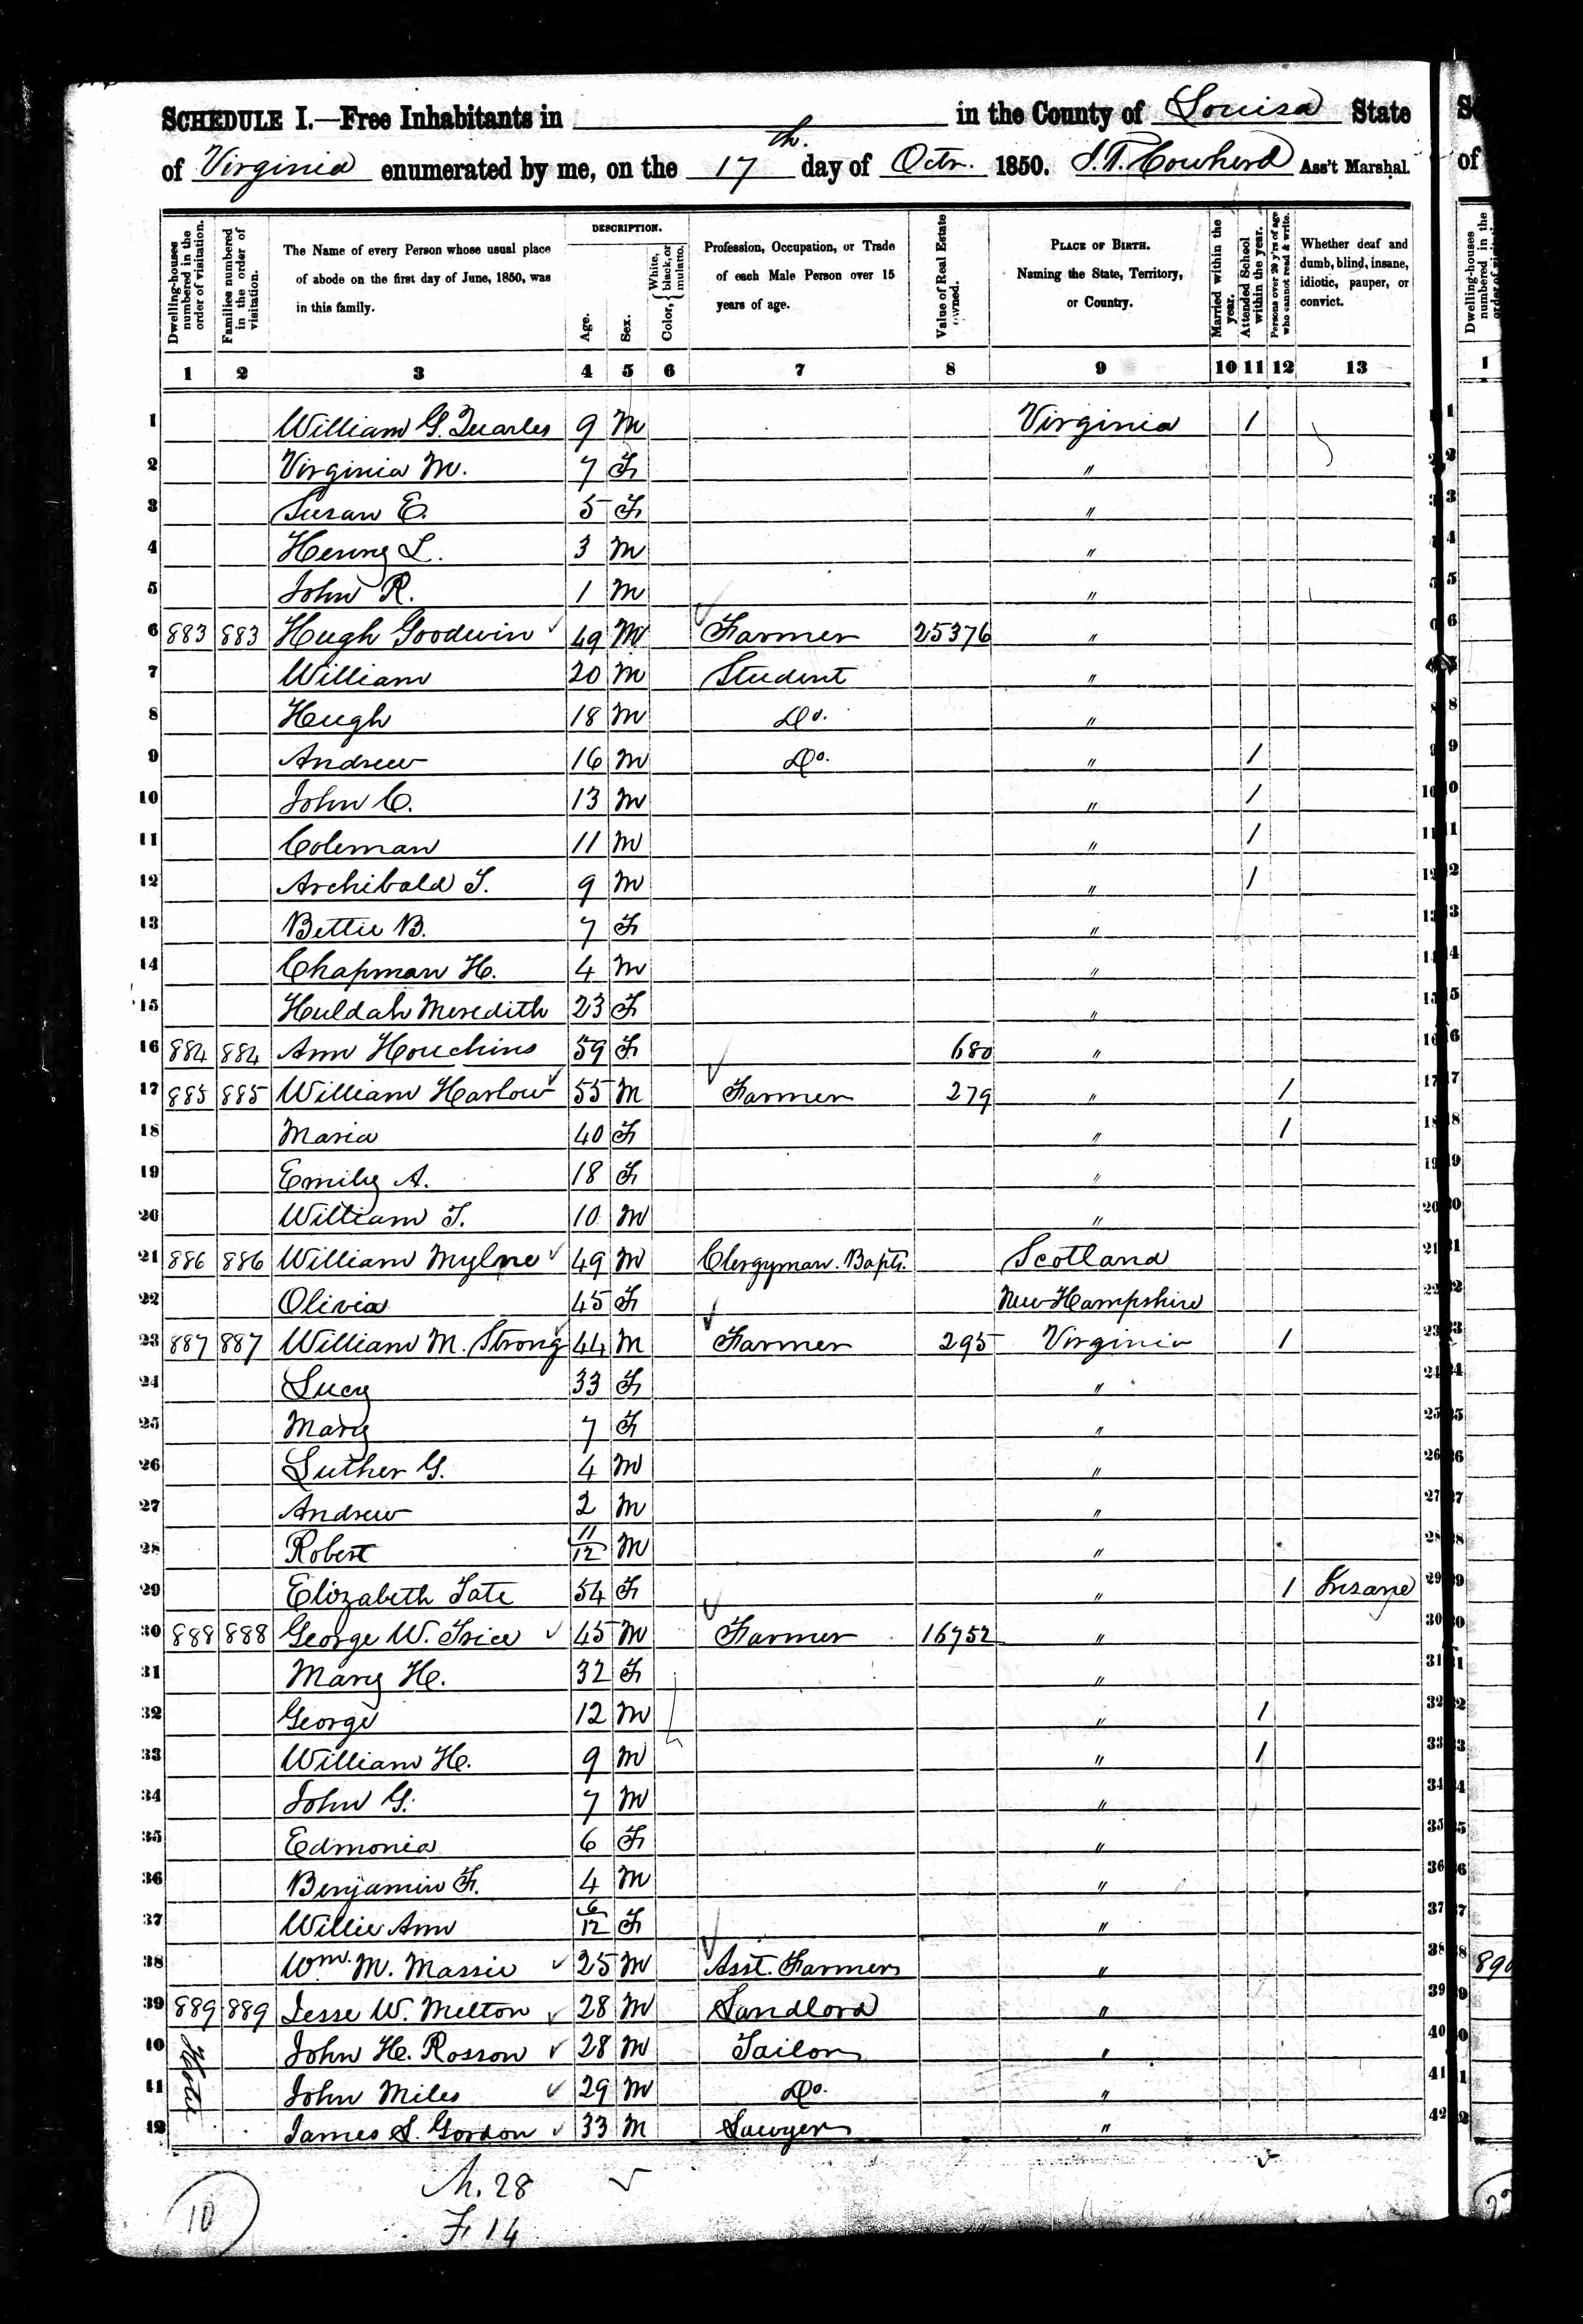 SCHEDULE I.—Free Inhabitants in in the County of Louisa State
of Virginia enumerated by me, on the 17th. day of Octr. 1850. S.T. Cowherd Ass't Marshal.
Dwelling-houses numbered in the order of visitation.
Families numbered in the order of visitation.
The Name of every Person whose usual place of abode on the first day of June, 1850, was in this family.
DESCRIPTION.
Age.
Sex.
Color, { White, black, or mulatto.
Profession, Occupation, or Trade of each Male Person over 15 years of age.
Value of Real Estate owned.
PLACE OF BIRTH. Naming the State, Territory, or Country.
Married within the year.
Attended School within the year.
Persons over 20 y'rs of age who cannot read & write.
Whether deaf and dumb, blind, insane, idiotic, pauper, or convict.
1 2 3 4 5 6 7 8 9 10 11 12 13
1 William G. Quarles 9 M Virginia 1 1
2 Virginia M. 7 F " 2
3 Susan E. 5 F " 3
4 Henry L. 3 M " 4
5 John R. 1 M " 5
6 883 883 Hugh Goodwin 49 M Farmer 25376 " 6
7 William 20 M Student "
8 Hugh 18 M Do. " 8
9 Andrew 16 M Do. " 1 9
10 John C. 13 M " 1 10
11 Coleman 11 M " 1 11
12 Archibald T. 9 M " 1 12
13 Bettie B. 7 F " 13
14 Chapman H. 4 M " 14
15 Huldah Meredith 23 F " 15
16 884 884 Ann Houchins 59 F 680 " 16
17 885 885 William Harlow 55 M Farmer 279 " 1 17
18 Maria 40 F " 1 18
19 Emily A. 18 F " 19
20 William T. 10 M " 20
21 886 886 William Mylne 49 M Clergyman. Bapt. Scotland 21
22 Olivia 45 F New Hampshire 22
23 887 887 William M. Strong 44 M Farmer 295 Virginia 1 23
24 Lucy 33 F " 24
25 Mary 7 F " 25
26 Luther G. 4 M " 26
27 Andrew 2 M " 27
28 Robert 11/12 M " 28
29 Elizabeth Tate 54 F " 1 Insane 29
30 888 888 George W. Trice 45 M Farmer 16752 " 30
31 Mary H. 32 F " 31
32 George 12 M " 1 32
33 William H. 9 M " 1 33
34 John G. 7 M " 34
35 Edmonia 6 F " 35
36 Benjamin F. 4 M " 36
37 Willie Ann 6/12 F " 37
38 Wm. M. Massie 25 M Asst. Farmer " 38
39 889 889 Jesse W. Melton 28 M Landlord " 39
40 Hotel John H. Rosson 28 M Tailor " 40
41 John Miles 29 M Do. " 41
42 James S. Gordon 33 M Lawyer " 42
M. 28
F. 14
10
890